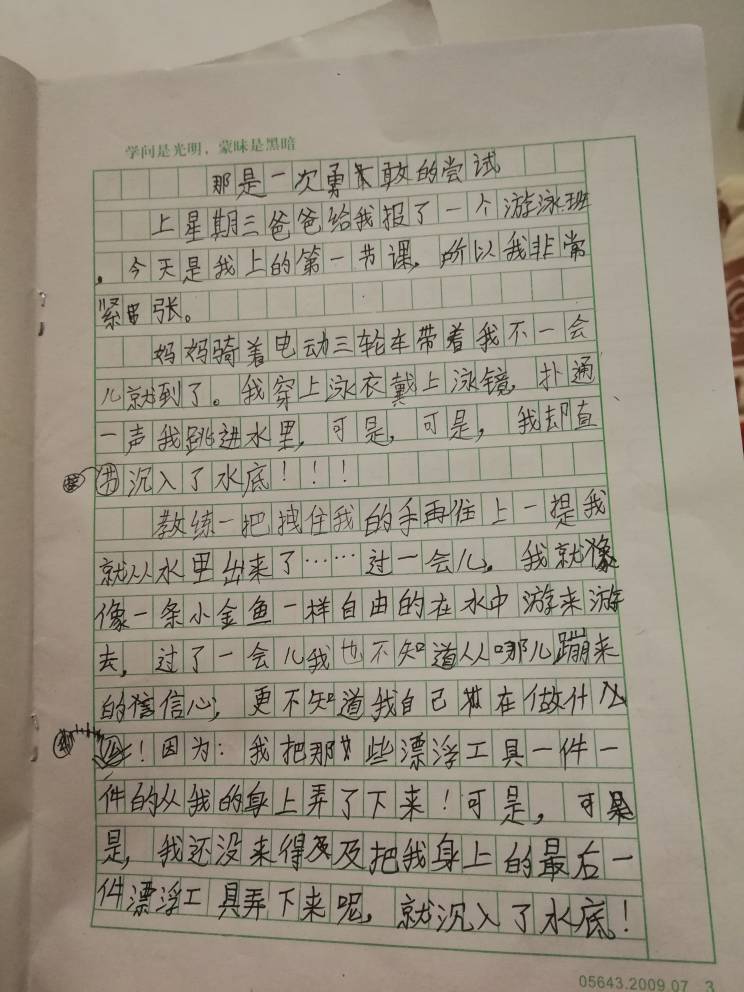 学问是光明，蒙昧是黑暗
那是一次勇敢的尝试
上星期三爸爸给我报了一个游泳班
，今天是我上的第一节课，所以我非常
紧张。
妈妈骑着电动三轮车带着我不一会
儿就到了。我穿上泳衣戴上泳镜，扑通
一声我跳进水里，可是，可是，我却直
沉入了水底！！！
教练一把拽住我的手再住上一提我
就从水里出来了……过一会儿，我就像
像一条小金鱼一样自由的在水中游来游
去，过了一会儿我也不知道从哪儿蹦来
的信心；更不知道我自己在做什么
！因为：我把那些漂浮工具一件一
件的从我的身上弄了下来！可是，可
是，我还没来得及把我身上的最后一
件漂浮工具弄下来呢，就沉入了水底！
05643.2009.07 3